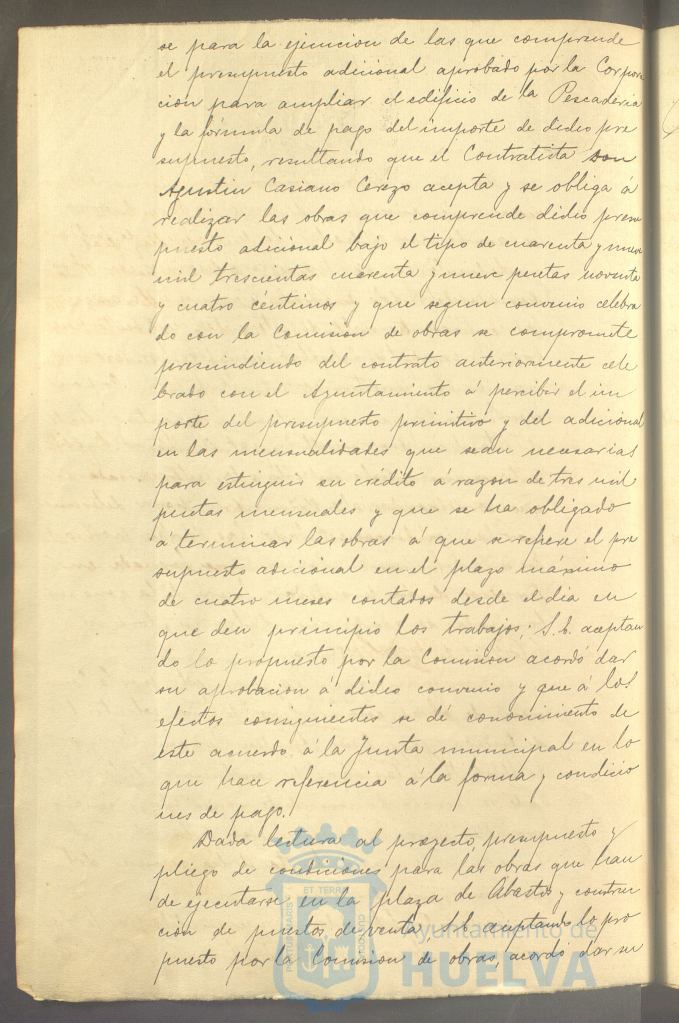 se para la ejecucion de las que comprende
el presupuesto adicional aprobado por la Corpora
cion para ampliar el edificio de la Pescaderia
y la fórmula de pago del importe de dicho pre
supuesto, resultando que el Contratista don
Agustin Casiano Cerezo acepta y se obliga á
realizar las obras que comprende dicho presu
puesto adicional bajo el tipo de cuarenta y nueve
mil trescientas cuarenta y nueve pesetas noventa
y cuatro céntimos y que segun convenio celebra
do con la Comision de obras se compromete
prescindiendo del contrato anteriormente cele
brado con el Ayuntamiento á percibir el im
porte del presupuesto primitivo y del adicional
en las mensualidades que sean necesarias
para estinguir su crédito á razon de tres mil
pesetas mensuales y que se ha obligado
á terminar las obras á que se refiere el pre
supuesto adicional en el plazo máximo
de cuatro meses contados desde el dia en
que den principio los trabajos; S.E. aceptan
do lo propuesto por la Comision acordó dar
su aprobacion á dicho convenio y que á los
efectos consiguientes se dé conocimiento de
este acuerdo á la Junta municipal en lo
que hace referencia á la forma y condicio
nes de pago.
Dada lectura al proyecto, presupuesto y
pliego de condiciones para las obras que han
de ejecutarse en la plaza de Abastos y construc
cion de puestos de venta S.E. aceptando lo pro
puesto por la Comision de obras, acordó dar su
ET TERRÆ
PORTUS MARIS
CUSTODIA
Ayuntamiento de
HUELVA